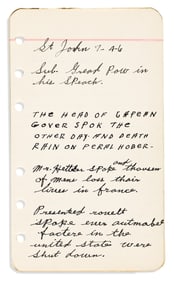 St John 7-46
Sub. Great Pow in
his Speach.
THE HEAD OF
GOVER SPOR THE
OTHER DAY AND DEATH
RAIN ON PERAL HOBER-
Mr. Hettler spoke and thousen
of mane loss their
lives in france.
Presented ronett
spoke ever autmobel
factere in the
united states were
shut down.